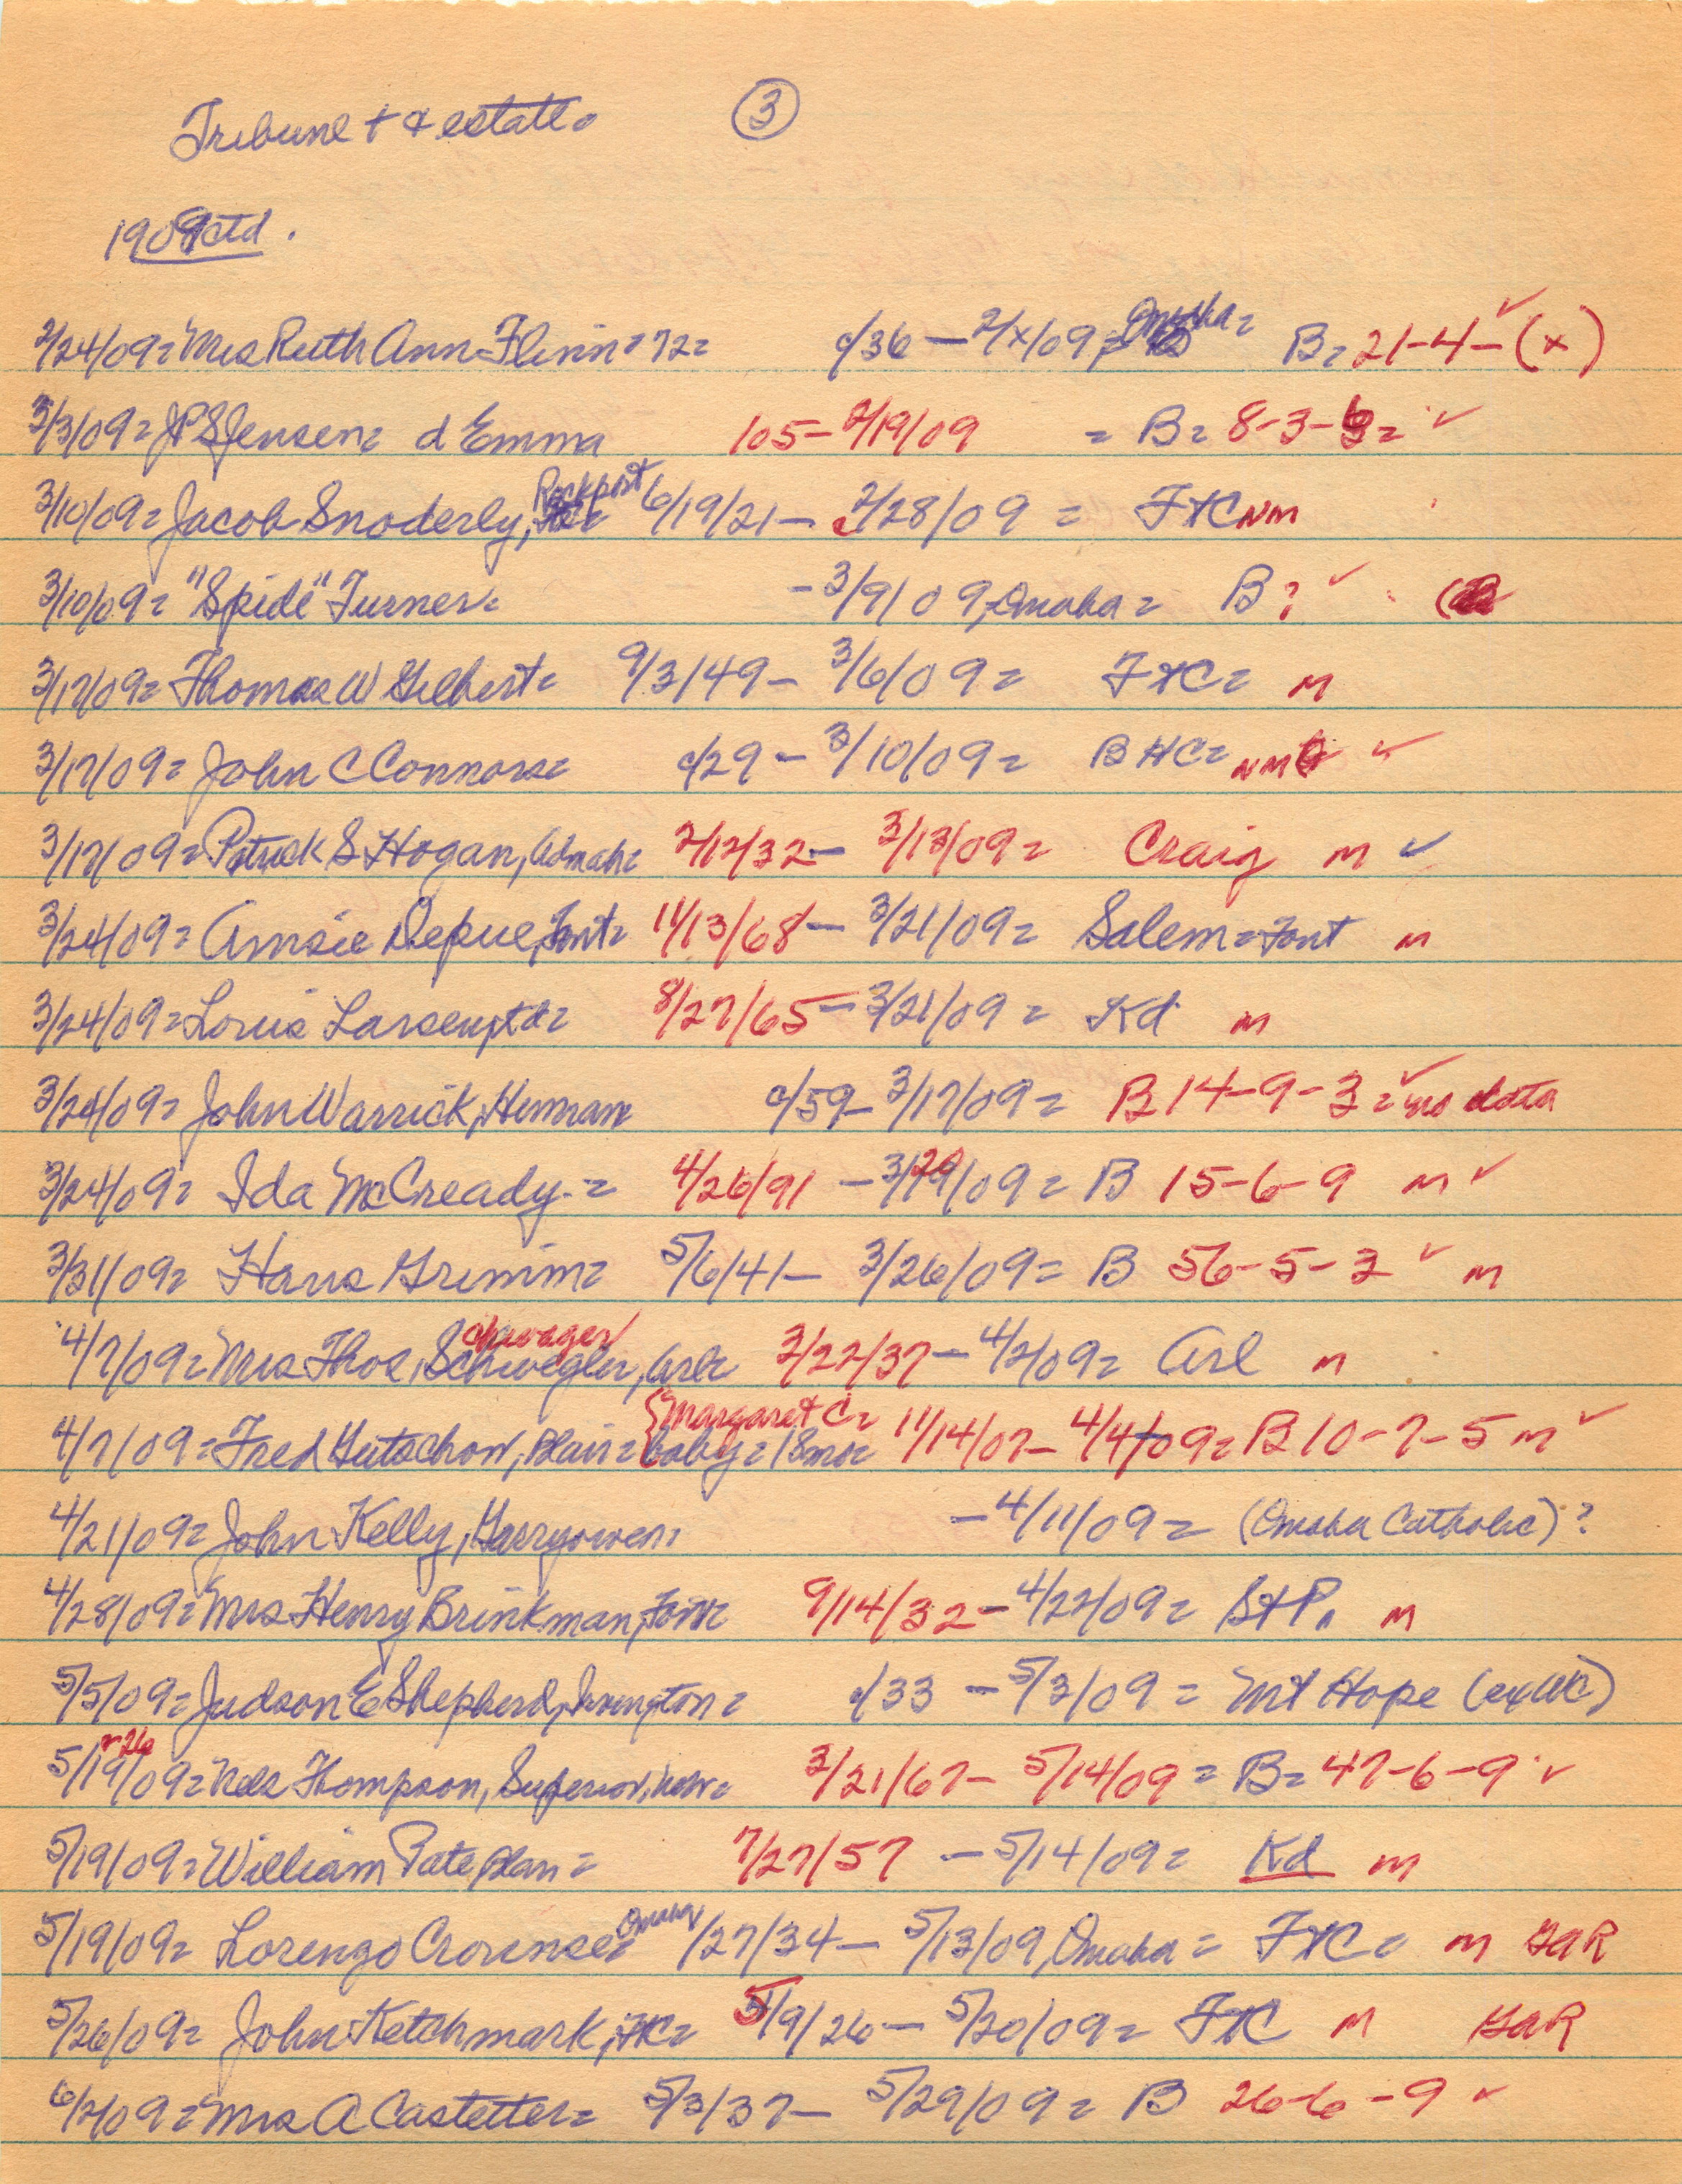 Tribune + & estate. ③
1909 ctd.
2/24/09= Mrs Ruth Ann Flinn= 72= c/36 – 2/x/09, Omaha= B= 21-4-✓(x)
3/3/09= JPS Jensen= d Emma 105- 2/19/09 = B= 8-3-6= ✓
3/10/09= Jacob Snoderly, Rockport 6/19/21- 2/28/09 = FtC NM
3/10/09= "Spide" Turner= -3/9/09, Omaha= B? ✓
3/17/09= Thomas W Gilbert= 9/3/49- 3/6/09= FtC= m
3/17/09= John C Connors= c/29- 3/10/09= BHC= NM ✓
3/17/09= Patrick S Hogan, Admah= 2/12/32- 3/13/09= Craig m ✓
3/24/09= Amsie Depue, Font= 11/13/68- 3/21/09= Salem=Font m
3/24/09= Loris Larsen, Kd= 8/27/65- 3/21/09= Kd m
3/24/09= John Warrick, Herman c/59- 3/17/09= B 14-9-3 ✓= no data
3/24/09= Ida McCready= 4/26/91 - 3/20/09= B 15-6-9 m ✓
3/31/09= Hans Grimm= 5/6/41- 3/26/09= B 56-5-3 ✓ m
chwager
4/7/09= Mrs Thos, Schwegler, Arl= 2/22/37- 4/2/09= Arl m
{Margaret C=
4/7/09= Fred Gutschow, Blair= baby= 18mo= 11/14/07- 4/4/09= B 10-7-5 m ✓
4/21/09= John Kelly, Garryowen, -4/11/09= (Omaha Catholic)?
4/28/09= Mrs Henry Brinkman, Font= 9/14/32- 4/22/09= StP. m
5/5/09= Judson E Shepherd, Irvington= c/33 - 5/3/09= Mt Hope (exWC)
r 26
5/19/09= Nels Thompson, Superior, Neb= 3/21/67- 5/14/09= B= 47-6-9 ✓
5/19/09= William Pate, plan= 7/27/57 - 5/14/09= Kd m
5/19/09= Lorenzo Crounse= Omaha 1/27/34- 5/13/09, Omaha= FtC= m GAR
5/26/09= John Ketchmark, FtC= 5/9/26- 5/20/09= FtC m GAR
6/2/09= Mrs A Castetter= 5/3/37- 5/29/09= B 26-6-9 ✓